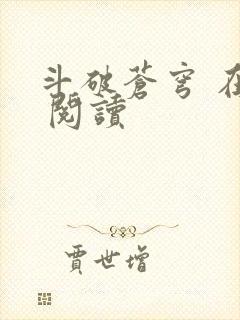 斗破蒼穹 在
閱讀
賈世增